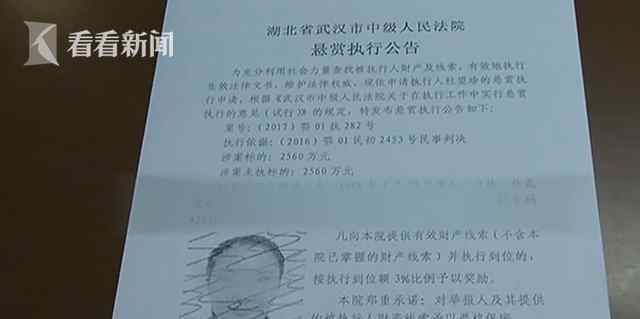 看看新闻
湖北省武汉市中级人民法院
悬赏执行公告
为充分利用社会力量查找被执行人财产及线索，有效地执行
生效法律文书，维护法律权威，现依申请执行人杜望珍的悬赏执
行申请，根据《武汉市中级人民法院关于在执行工作中实行悬赏
执行的意见（试行）》的规定，特发布悬赏执行公告如下：
案号：（2017）鄂 01 执 282 号
执行依据：（2016）鄂 01 民初 2453 号民事判决
涉案标的：2560 万元
涉案未执标的：2560 万元
凡向本院提供有效财产线索（不含本
院已掌握的财产线索）并执行到位的，
按执行到位额 3%比例予以奖励。
本院郑重承诺：对举报人及其提供
的被执行人财产线索予以严格保密